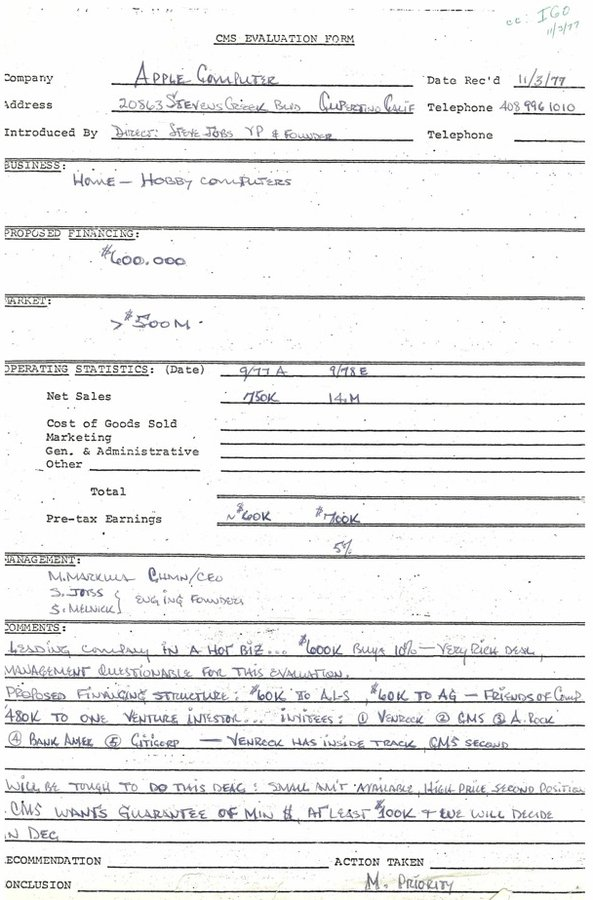 cc: IGO
11/3/77
CMS EVALUATION FORM
Company APPLE COMPUTER Date Rec'd 11/3/77
Address 20863 STEVENS CREEK BLVD CUPERTINO CALIF Telephone 408 996 1010
Introduced By DIRECT: STEVE JOBS VP & FOUNDER Telephone
BUSINESS:
HOME - HOBBY COMPUTERS
PROPOSED FINANCING:
$600.000
MARKET:
>$500M.
OPERATING STATISTICS: (Date) 9/77A 9/78E
Net Sales 750K 14.M
Cost of Goods Sold
Marketing
Gen. & Administrative
Other
Total
Pre-tax Earnings ~$60K $700K
5%
MANAGEMENT:
M. MARKULA CHMN/CEO
S. JOBS
S. MELNICK } FOUNDERS
COMMENTS:
LEADING COMPANY IN A HOT BIZ... $600K BUYS 10% - VERY RICH DEAL,
MANAGEMENT QUESTIONABLE FOR THIS EVALUATION.
PROPOSED FINANCING STRUCTURE: $60K TO $60K TO AG - FRIENDS OF COMP
480K TO ONE VENTURE INVESTOR... INVITEES: ① VENROCK ② CMS ③ A. ROCK
④ BANK AMER ⑤ CITICORP - VENROCK HAS INSIDE TRACK, CMS SECOND
WILL BE TOUGH TO DO THIS DEAL: SMALL AM'T AVAILABLE, HIGH PRICE, SECOND POSITION
CMS WANTS GUARANTEE OF MIN $, AT LEAST $300K + WE WILL DECIDE
IN DEC
RECOMMENDATION ACTION TAKEN
CONCLUSION M. PRIORITY